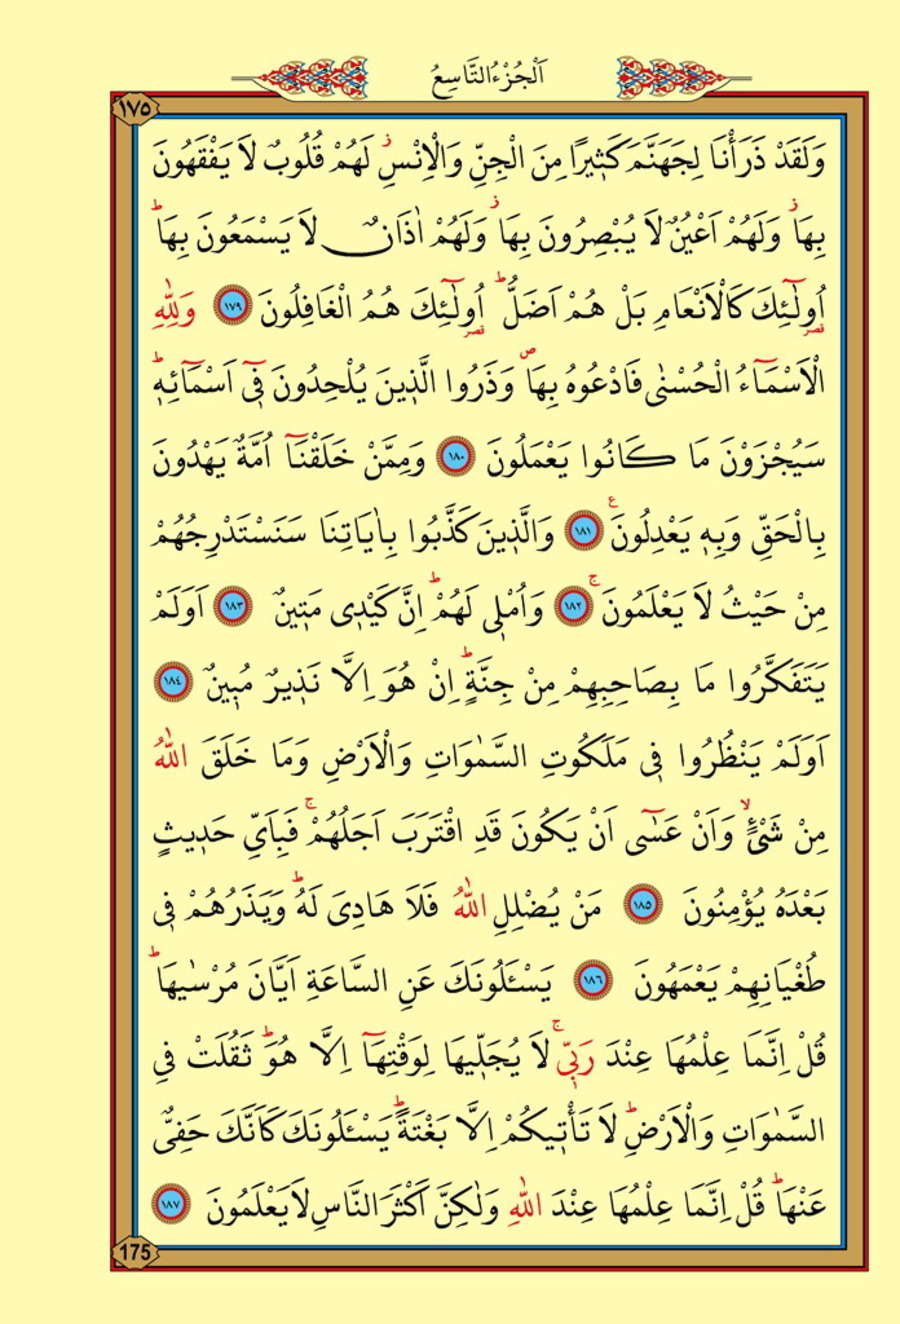 اَلْجُزْءُ التَّاسِعُ
١٧٥
وَلَقَدْ ذَرَأْنَا لِجَهَنَّمَ كَثٖيرًا مِنَ الْجِنِّ وَالْاِنْسِؗ لَهُمْ قُلُوبٌ لَا يَفْقَهُونَ
بِهَاؗ وَلَهُمْ اَعْيُنٌ لَا يُبْصِرُونَ بِهَاؗ وَلَهُمْ اٰذَانٌ لَا يَسْمَعُونَ بِهَاؕ
اُو۬لٰٓئِكَ كَالْاَنْعَامِ بَلْ هُمْ اَضَلُّؕ اُو۬لٰٓئِكَ هُمُ الْغَافِلُونَ ١٧٩ وَلِلّٰهِ
الْاَسْمَٓاءُ الْحُسْنٰى فَادْعُوهُ بِهَاۖ وَذَرُوا الَّذٖينَ يُلْحِدُونَ فٖٓى اَسْمَٓائِهٖؕ
سَيُجْزَوْنَ مَا كَانُوا يَعْمَلُونَ ١٨٠ وَمِمَّنْ خَلَقْنَٓا اُمَّةٌ يَهْدُونَ
بِالْحَقِّ وَبِهٖ يَعْدِلُونَ ع ١٨١ وَالَّذٖينَ كَذَّبُوا بِاٰيَاتِنَا سَنَسْتَدْرِجُهُمْ
مِنْ حَيْثُ لَا يَعْلَمُونَۚ ١٨٢ وَاُمْلٖى لَهُمْؕ اِنَّ كَيْدٖى مَتٖينٌ ١٨٣ اَوَلَمْ
يَتَفَكَّرُوا مَا بِصَاحِبِهِمْ مِنْ جِنَّةٍؕ اِنْ هُوَ اِلَّا نَذٖيرٌ مُبٖينٌ ١٨٤
اَوَلَمْ يَنْظُرُوا فٖى مَلَكُوتِ السَّمٰوَاتِ وَالْاَرْضِ وَمَا خَلَقَ اللّٰهُ
مِنْ شَىْءٍۙ وَاَنْ عَسٰٓى اَنْ يَكُونَ قَدِ اقْتَرَبَ اَجَلُهُمْۚ فَبِاَىِّ حَدٖيثٍ
بَعْدَهُ يُؤْمِنُونَ ١٨٥ مَنْ يُضْلِلِ اللّٰهُ فَلَا هَادِىَ لَهُؕ وَيَذَرُهُمْ فٖى
طُغْيَانِهِمْ يَعْمَهُونَ ١٨٦ يَسْـَٔلُونَكَ عَنِ السَّاعَةِ اَيَّانَ مُرْسٰيهَاؕ
قُلْ اِنَّمَا عِلْمُهَا عِنْدَ رَبّٖىۚ لَا يُجَلّٖيهَا لِوَقْتِهَٓا اِلَّا هُوَؕ ثَقُلَتْ فِى
السَّمٰوَاتِ وَالْاَرْضِؕ لَا تَأْتٖيكُمْ اِلَّا بَغْتَةًؕ يَسْـَٔلُونَكَ كَاَنَّكَ حَفِىٌّ
عَنْهَاؕ قُلْ اِنَّمَا عِلْمُهَا عِنْدَ اللّٰهِ وَلٰكِنَّ اَكْثَرَ النَّاسِ لَا يَعْلَمُونَ ١٨٧
175